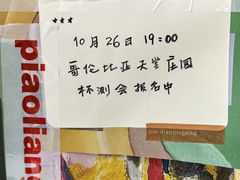 ***
10月26日 19:00
哥伦比亚天堂庄园
杯测会报名中
piaoliang
piaoliangisgood